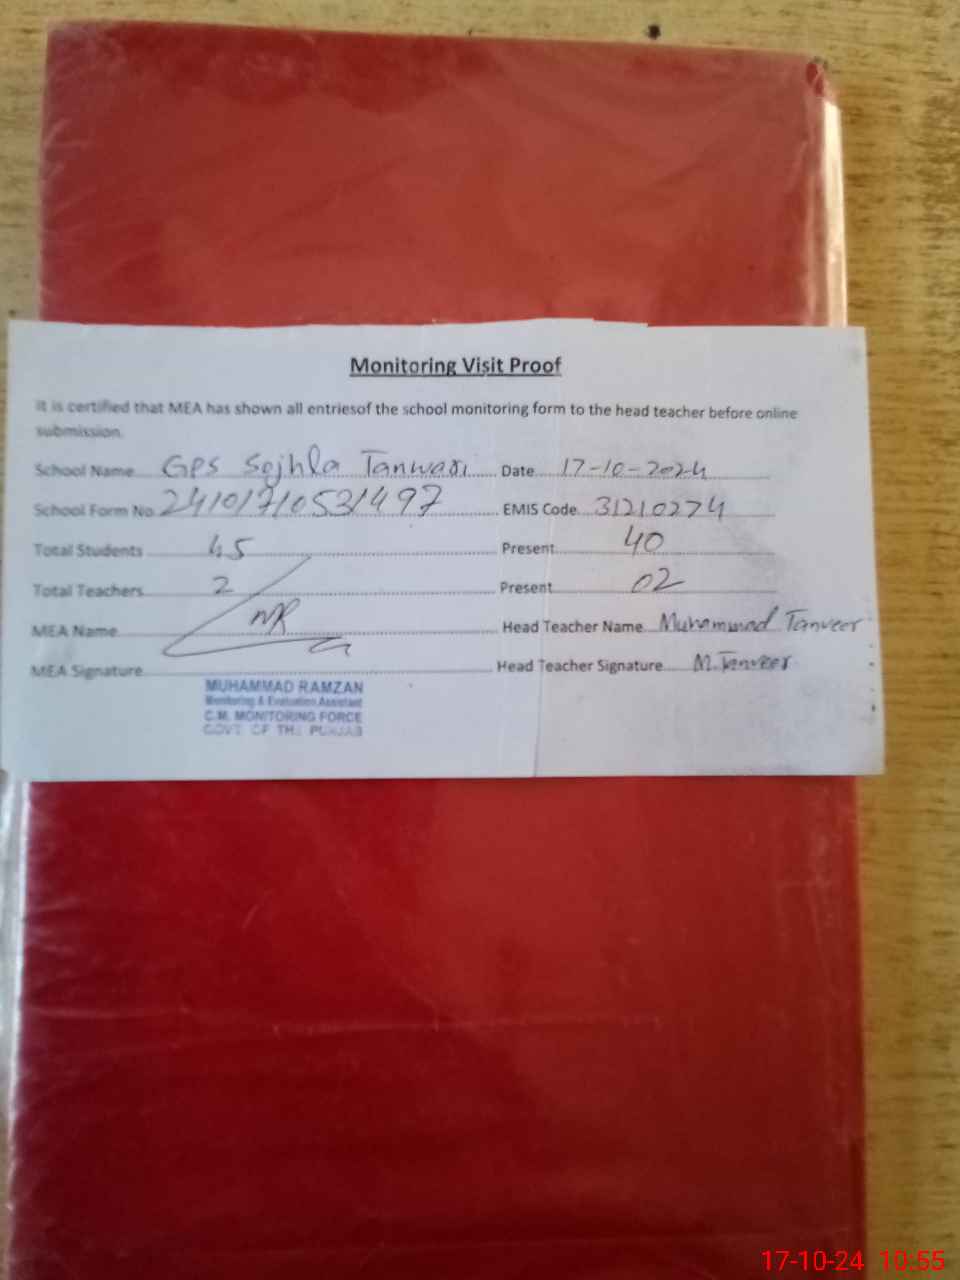 Monitoring Visit Proof
It is certified that MEA has shown all entriesof the school monitoring form to the head teacher before online
submission.
School Name GPS Sojhla Tanwari Date 17-10-2024
School Form No. 24101710531497 EMIS Code 31210274
Total Students 45 Present 40
Total Teachers 2 Present 02
MEA Name MR Head Teacher Name Muhammad Tanveer
MEA Signature Head Teacher Signature M. Tanveer
MUHAMMAD RAMZAN
Monitoring & Evaluation Assistant
C.M. MONITORING FORCE
GOVT OF THE PUNJAB
17-10-24 10:55